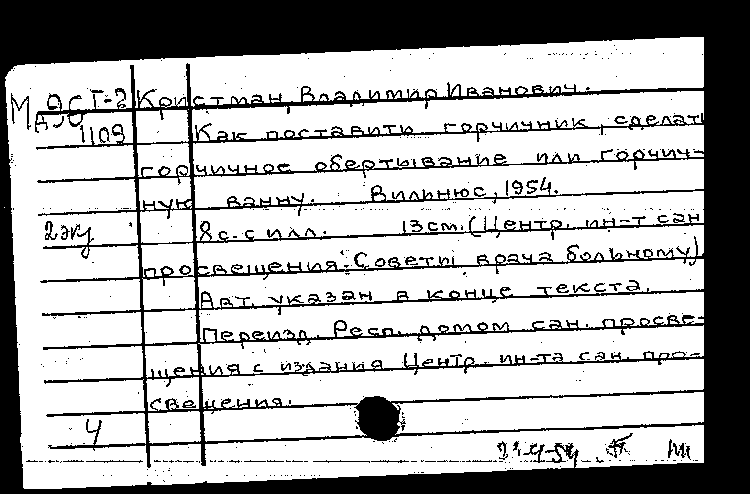 М ЭСТ-2 Кристман, Владимир Иванович.
1109 Как поставить горчичник, сделать
горчичное обертывание или горчич-
ную ванну. Вильнюс, 1954.
2 экз 8 с. с илл. 13 см. (Центр. ин-т сан
просвещения. Советы врача больному).
Авт. указан в конце текста.
Переизд. Респ. домом сан. просве-
щения с издания Центр. ин-та сан. про-
свещения.
4